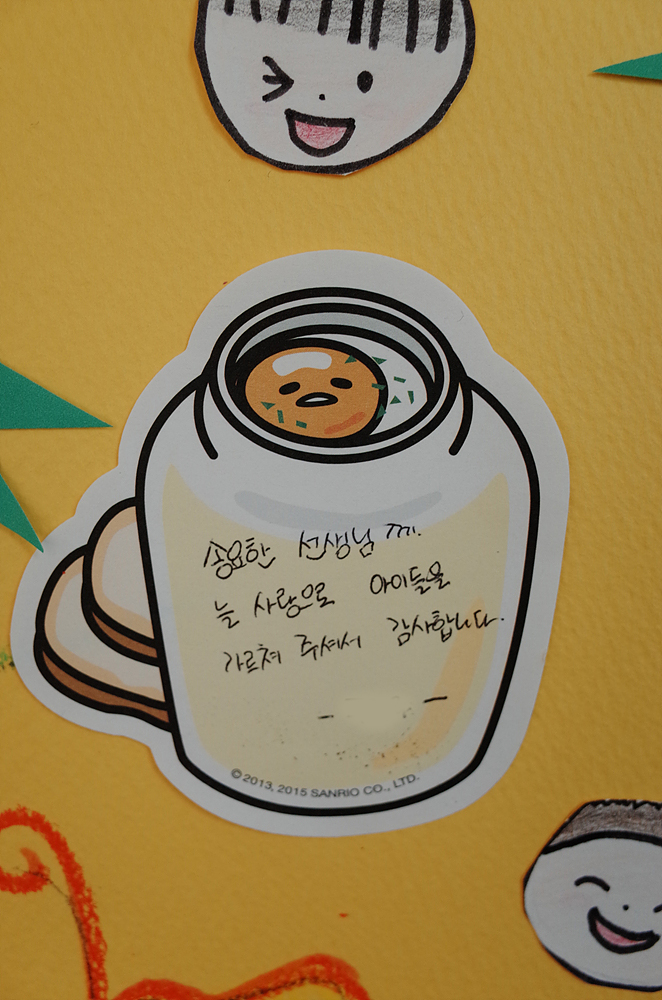 송요한 선생님 께.
늘 사랑으로 아이들을
가르쳐 주셔서 감사합니다.
- -
©2013, 2015 SANRIO CO., LTD.